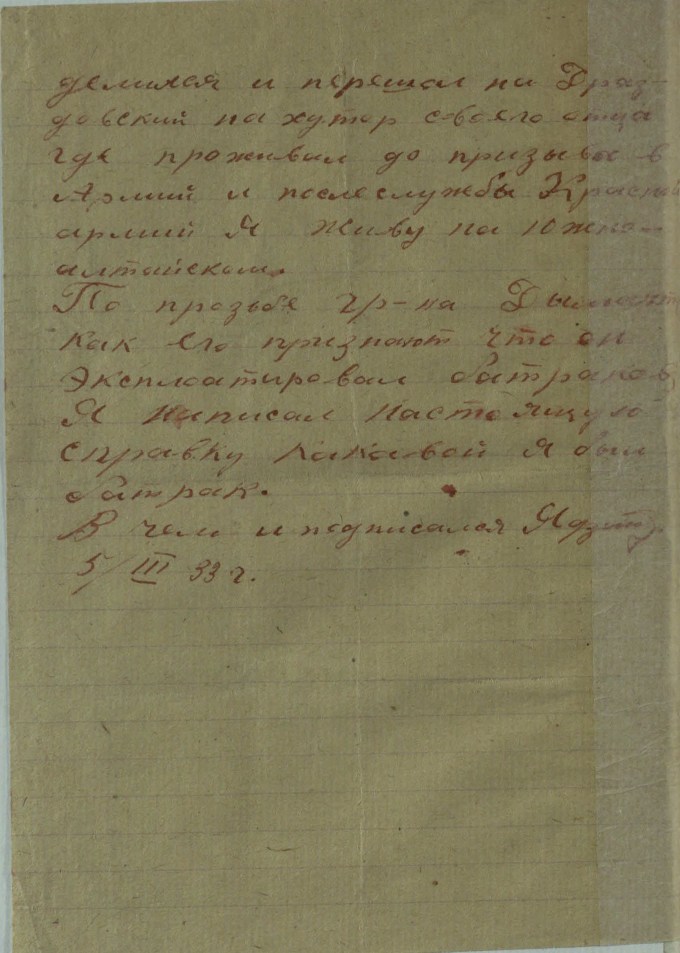 делился и перешол на Драз-
довский на хутор своего отца
где проживал до призыва в
Армий и после службы Красной
армий Я живу на Южно-
алтайском.
По прозьбе гр-на
как его признают что он
Эксплоатировал батраков
Я написал настоящую
справку какавой я был
батрак.
В чем и подписался
5/III 33 г.